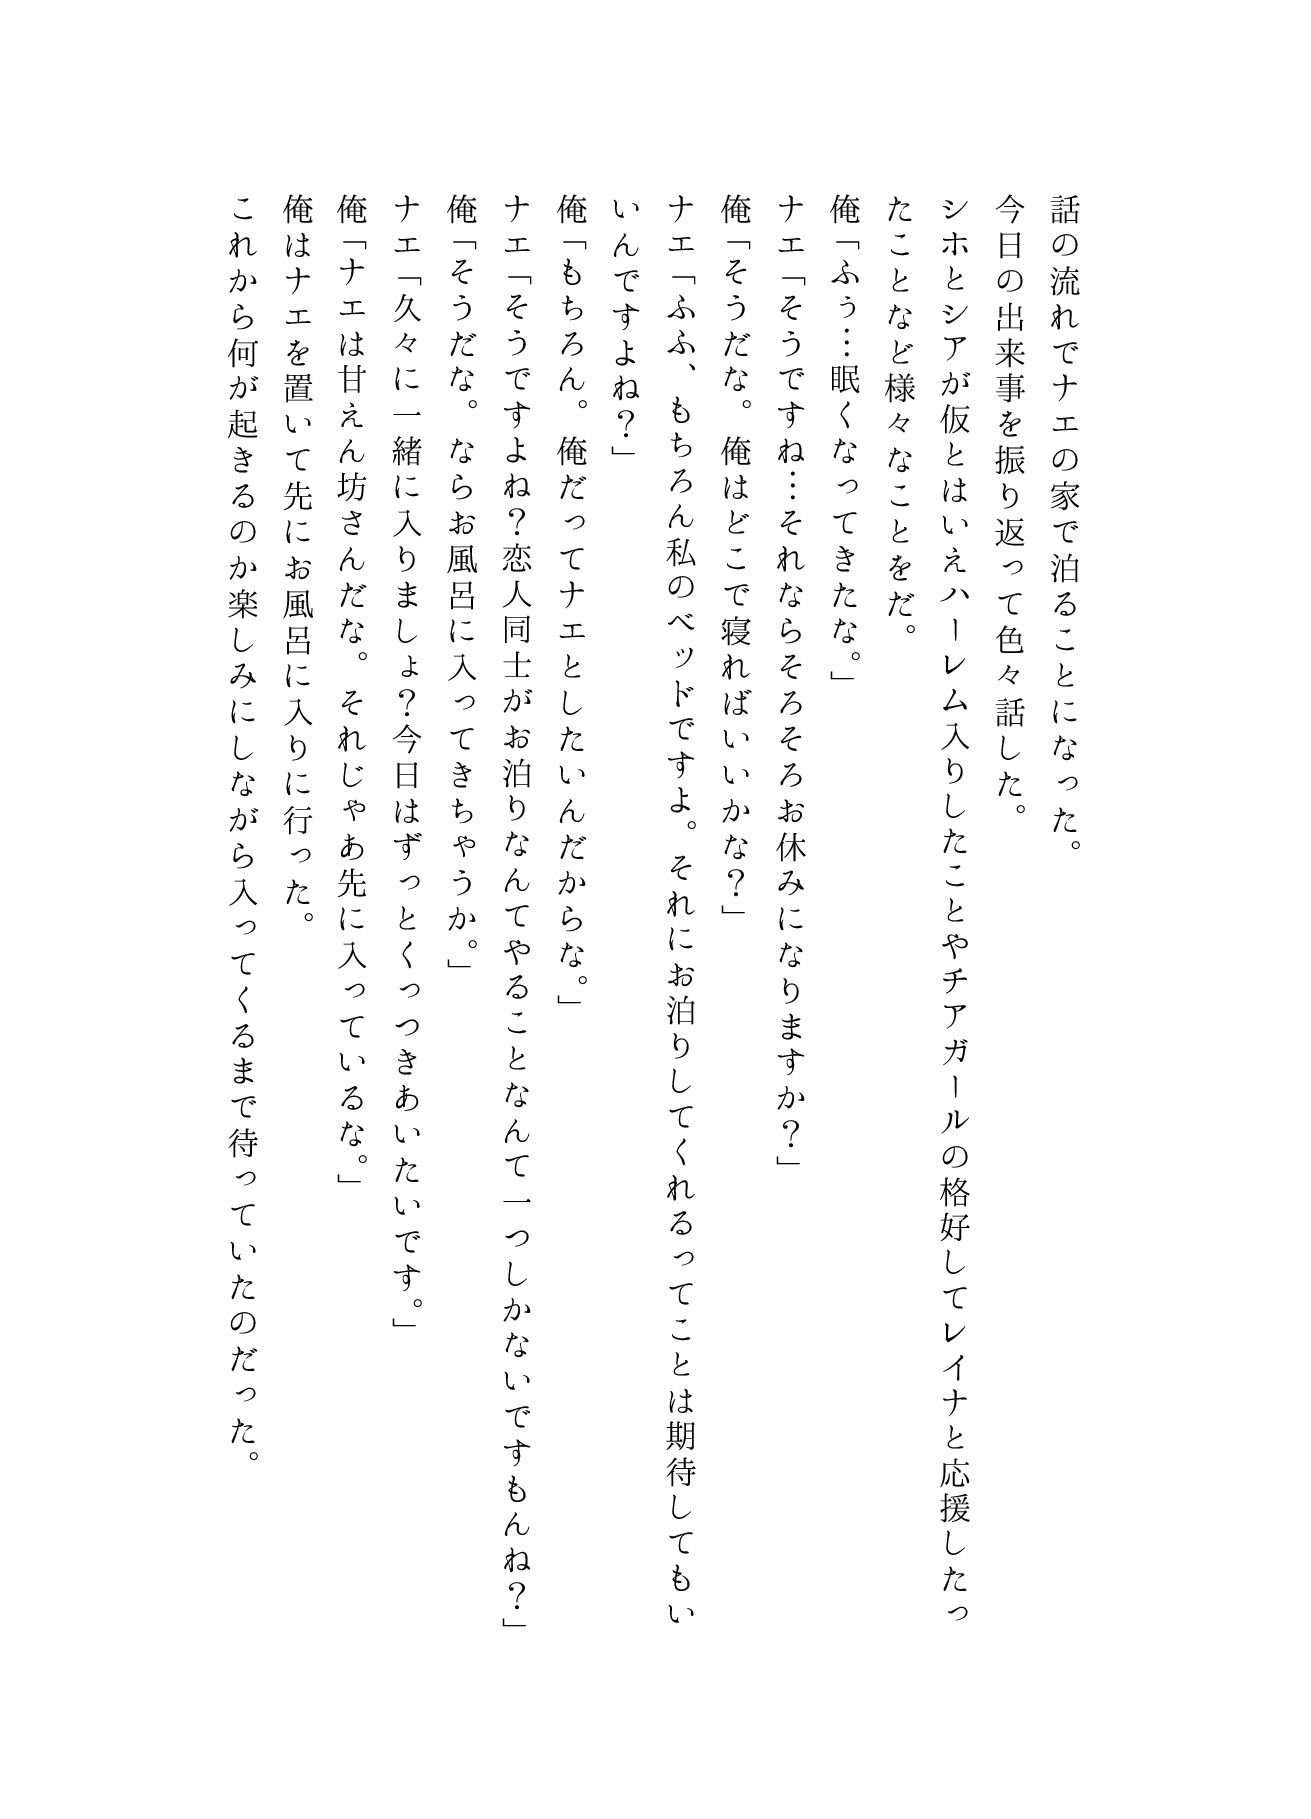 話の流れでナエの家で泊ることになった。
今日の出来事を振り返って色々話した。
シホとシアが仮とはいえハーレム入りしたことやチアガールの格好してレイナと応援したっ
たことなど様々なことをだ。
俺「ふぅ…眠くなってきたな。」
ナエ「そうですね…それならそろそろお休みになりますか？」
俺「そうだな。俺はどこで寝ればいいかな？」
ナエ「ふふ、もちろん私のベッドですよ。それにお泊りしてくれるってことは期待してもい
いんですよね？」
俺「もちろん。俺だってナエとしたいんだからな。」
ナエ「そうですよね？恋人同士がお泊りなんてやることなんて一つしかないですもんね？」
俺「そうだな。ならお風呂に入ってきちゃうか。」
ナエ「久々に一緒に入りましょ？今日はずっとくっつきあいたいです。」
俺「ナエは甘えん坊さんだな。それじゃあ先に入っているな。」
俺はナエを置いて先にお風呂に入りに行った。
これから何が起きるのか楽しみにしながら入ってくるまで待っていたのだった。